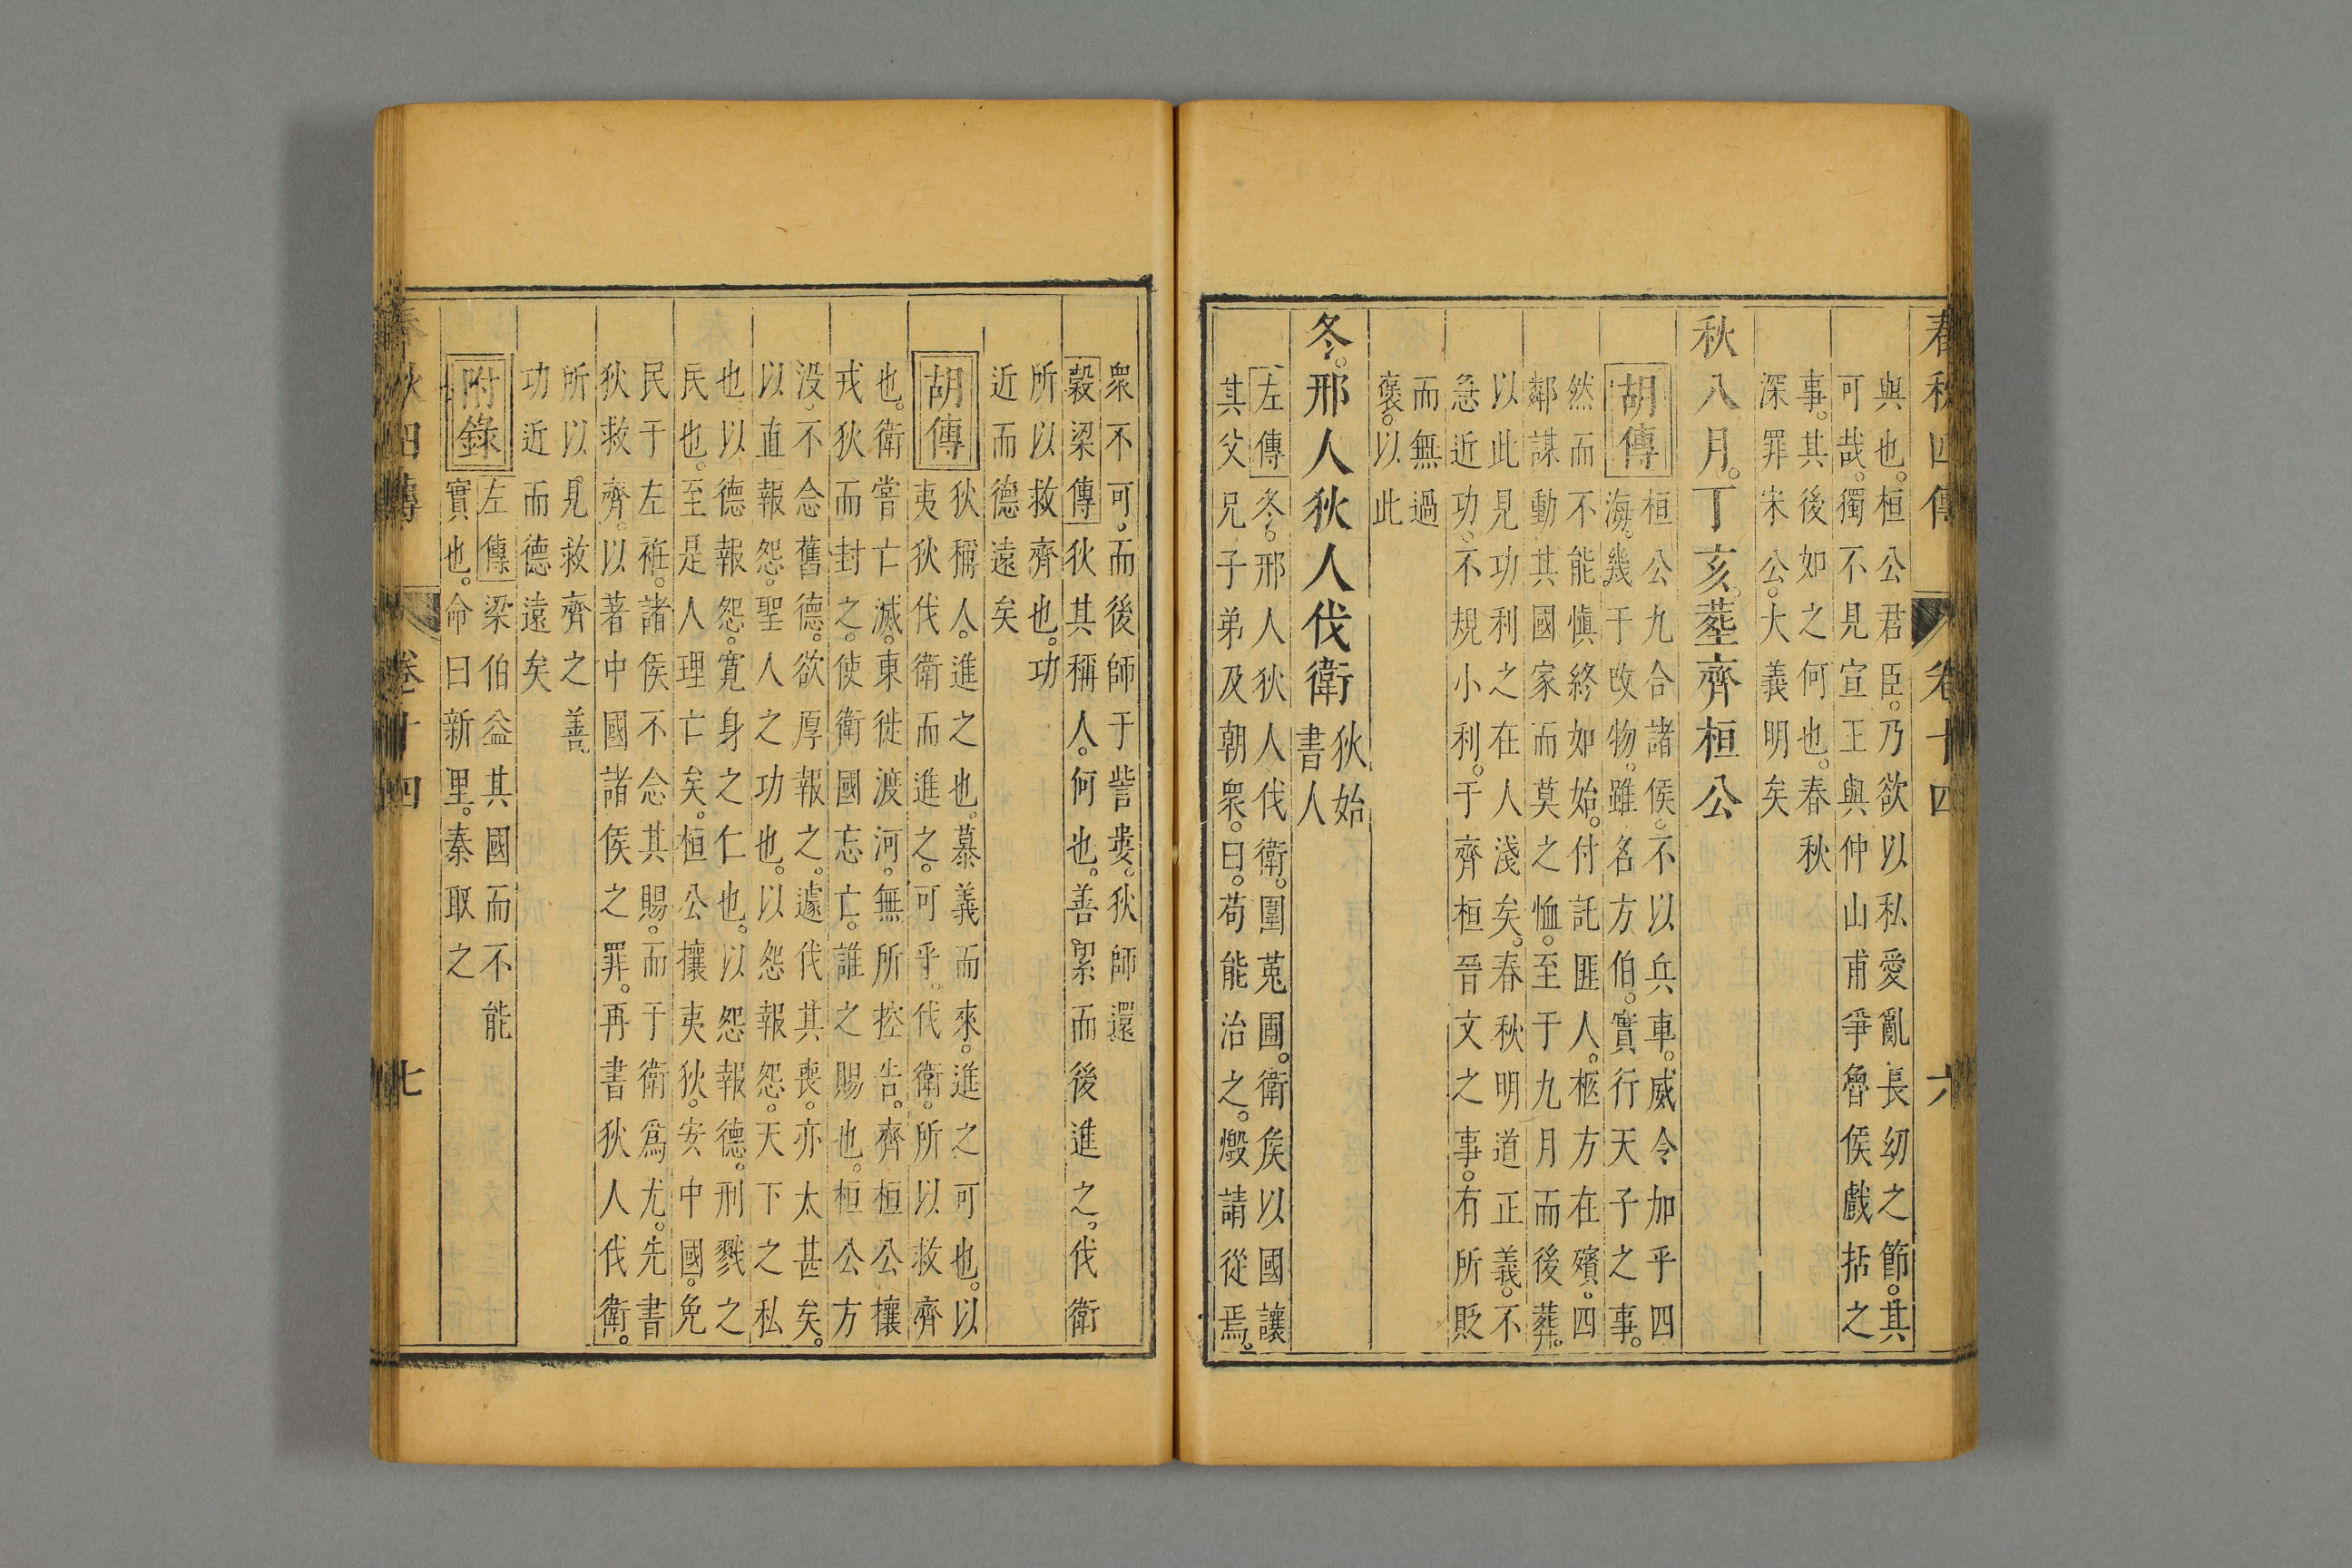 春秋四傳 卷十四 六
與也。桓公君臣。乃欲以私愛亂長幼之節。其
可哉。獨不見宣王與仲山甫爭魯侯戲括之
事。其後如之何也。春秋
深罪宋公。大義明矣
秋八月。丁亥。葬齊桓公
胡傳
桓公九合諸侯。不以兵車。威令加乎四
海。幾于改物。雖名方伯。實行天子之事。
然而不能慎終如始。付託匪人。柩方在殯。四
鄰謀動其國家而莫之恤。至于九月而後葬。
以此見功利之在人淺矣。春秋明道正義。不
急近功。不規小利。于齊桓晉文之事。有所貶
而無過
褒。以此
冬。邢人狄人伐衛
狄始
書人
左傳冬。邢人狄人伐衛。圍菟圃。衛侯以國讓
其父兄子弟及朝衆。曰。苟能治之。燬請從焉。
衆不可。而後師于訾婁。狄師還
穀梁傳狄其稱人。何也。善累而後進之。伐衛
所以救齊也。功
近而德遠矣
胡傳
狄稱人。進之也。慕義而來。進之可也。以
夷狄伐衛而進之。可乎。伐衛。所以救齊
也。衛嘗亡滅。東徙渡河。無所控告。齊桓公攘
戎狄而封之。使衛國忘亡。誰之賜也。桓公方
沒。不念舊德。欲厚報之。遽伐其喪。亦太甚矣。
以直報怨。聖人之功也。以怨報怨。天下之私
也。以德報怨。寬身之仁也。以怨報德。刑戮之
民也。至是人理亡矣。桓公攘夷狄。安中國。免
民于左袵。諸侯不念其賜。而于衛爲尤。先書
狄救齊。以著中國諸侯之罪。再書狄人伐衛。
所以見救齊之善。
功近而德遠矣
附錄
左傳梁伯益其國而不能
實也。命曰新里。秦取之
春秋四傳 卷十四 七